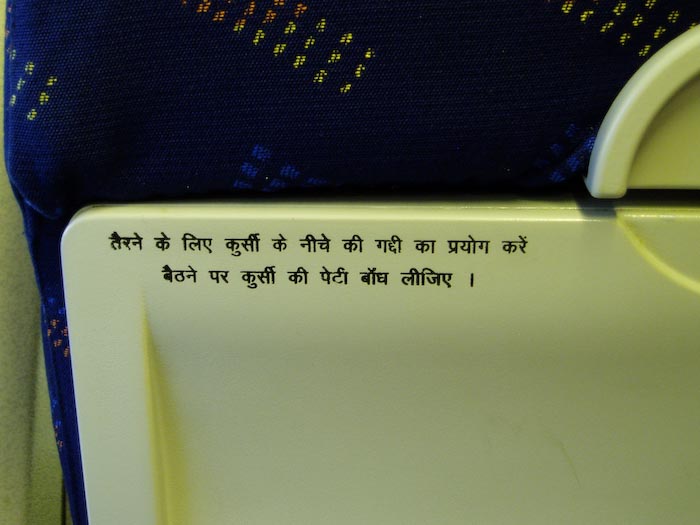 तैरने के लिए कुर्सी के नीचे की गद्दी का प्रयोग करें
बैठने पर कुर्सी की पेटी बॉंघ लीजिए ।